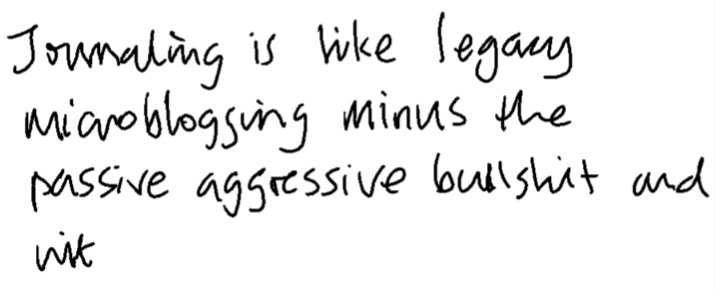 Journaling is like legacy
microblogging minus the
passive aggressive bullshit and
wit